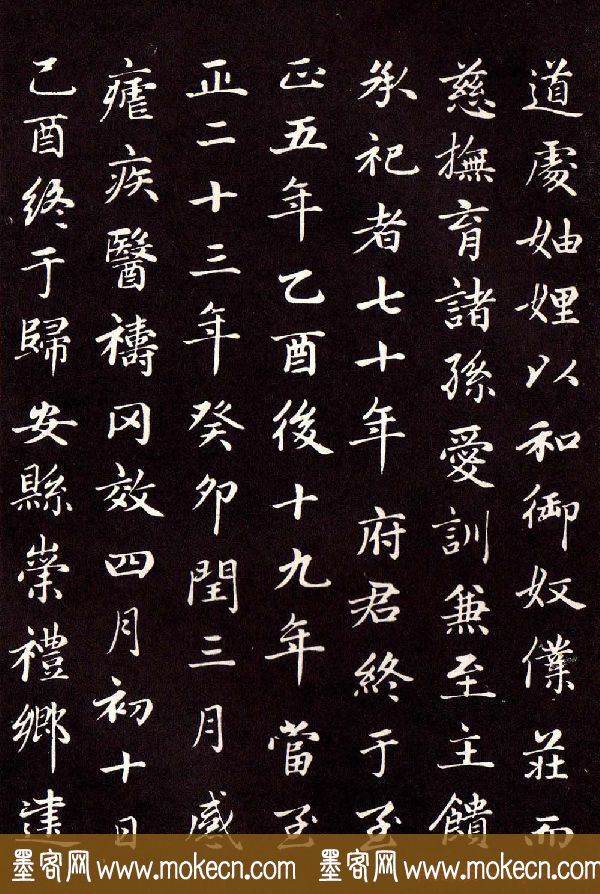 道處妯娌以和御奴僕莊而
慈撫育諸孫愛訓兼至主饋
承祀者七十年府君終于至
正五年乙酉後十九年當至
正二十三年癸卯閏三月感
瘧疾醫禱罔效四月初十日
己酉終于歸安縣崇禮鄉建
墨客网 www.mokecn.com 墨客网 www.mokecn.com